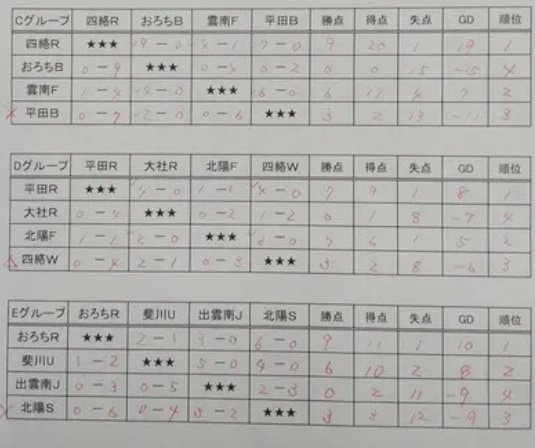 Cグループ 四絡R おろちB 雲南F 平田B 勝点 得点 失点 GD 順位
四絡R ★★★ 9 － 0 4 － 1 7 － 0 9 20 1 19 1
おろちB 0 － 9 ★★★ 0 － 4 0 － 2 0 0 15 -15 4
雲南F 1 － 4 4 － 0 ★★★ 6 － 0 6 11 4 7 2
平田B 0 － 7 2 － 0 0 － 6 ★★★ 3 2 13 -11 3
Dグループ 平田R 大社R 北陽F 四絡W 勝点 得点 失点 GD 順位
平田R ★★★ 4 － 0 1 － 1 4 － 0 7 9 1 8 1
大社R 0 － 4 ★★★ 0 － 2 1 － 2 0 1 8 -7 4
北陽F 1 － 1 2 － 0 ★★★ － 0 7 6 1 5 2
四絡W 0 － 4 2 － 1 0 － 3 ★★★ 3 2 8 -6 3
Eグループ おろちR 斐川U 出雲南J 北陽S 勝点 得点 失点 GD 順位
おろちR ★★★ 2 － 1 3 － 0 6 － 0 9 11 1 10 1
斐川U 1 － 2 ★★★ 5 － 0 4 － 0 6 10 2 8 2
出雲南J 0 － 3 0 － 5 ★★★ 2 － 3 0 2 11 -9 4
北陽S 0 － 6 0 － 4 3 － 2 ★★★ 3 3 12 -9 3